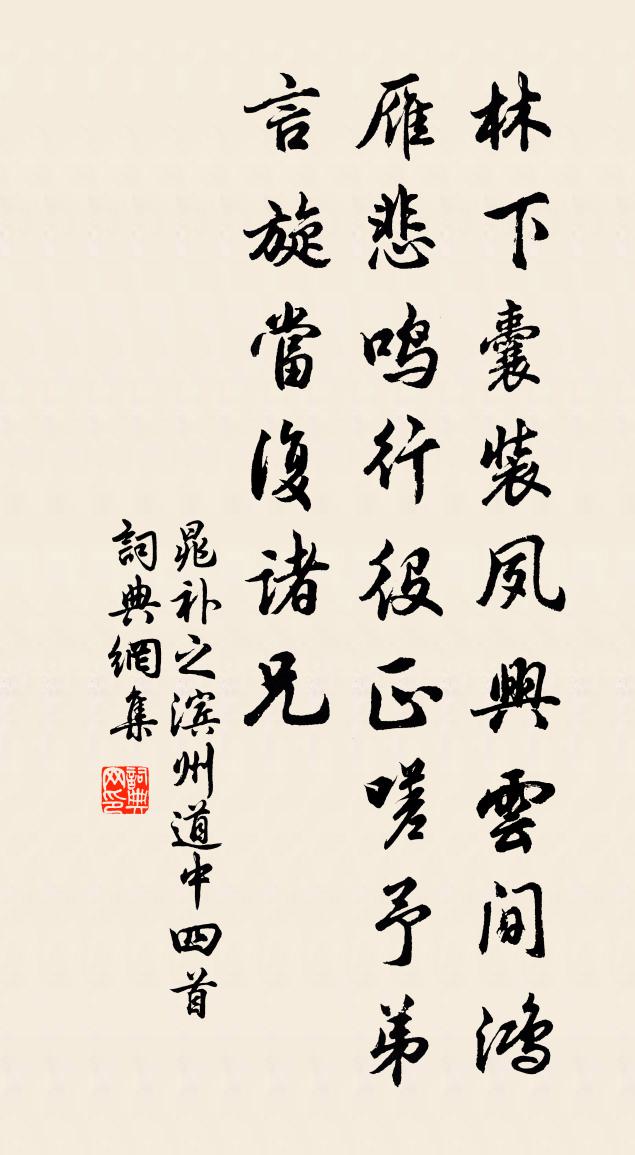 林下囊装夙興雲间鸿
雁悲鸣行役正嗟予弟
言旋當復诸兄
晁补之滨州道中四首
詞典網集
詞典网印